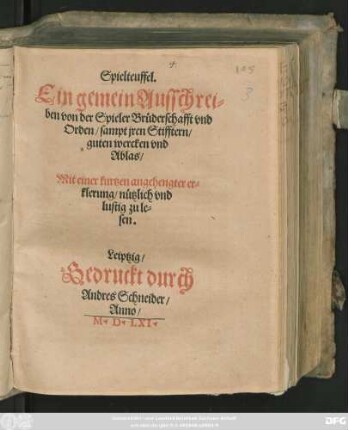 Spielteuffel.
Ein gemein Ausschrei-
ben von der Spieler Brüderschafft vnd
Orden / sampt jren Stifftern /
guten wercken vnd
Ablas /
Mit einer kurtzen angehengter er-
klerung / nützlich vnd
lustig zu le-
sen.
Leiptzig /
Gedruckt durch
Andres Schneider /
Anno /
M. D. LXI.
3
DFG